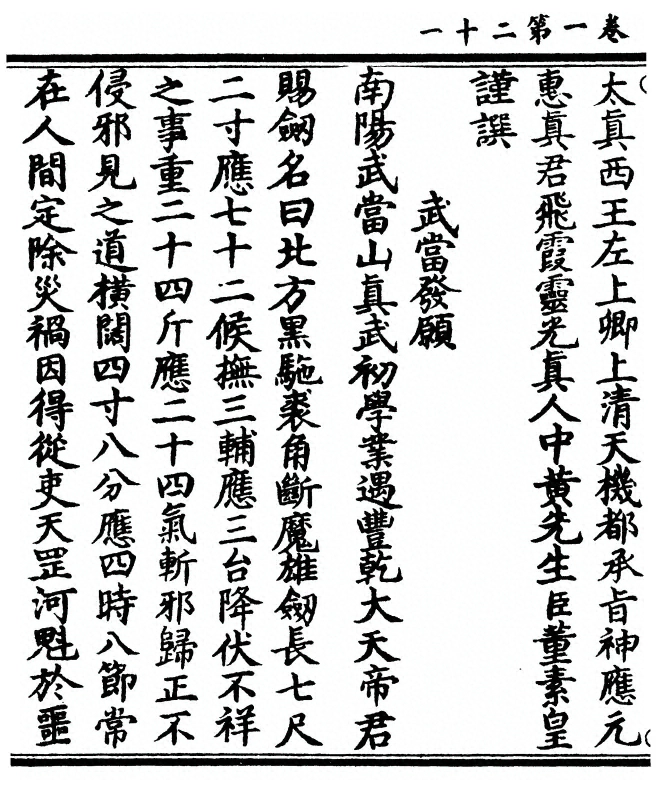 卷一第二十一
太眞西王左上卿上清天機都承旨神應元
惠眞君飛霞靈光眞人中黃先生臣董素皇
謹譔
武當發願
南陽武當山眞武初學業遇豐乾大天帝君
賜劒名曰北方黑駞裘角斷魔雄劒長七尺
二寸應七十二候撫三輔應三台降伏不祥
之事重二十四斤應二十四氣斬邪歸正不
侵邪見之道橫闊四寸八分應四時八節常
在人間定除災禍因得從吏天罡河魁於噩